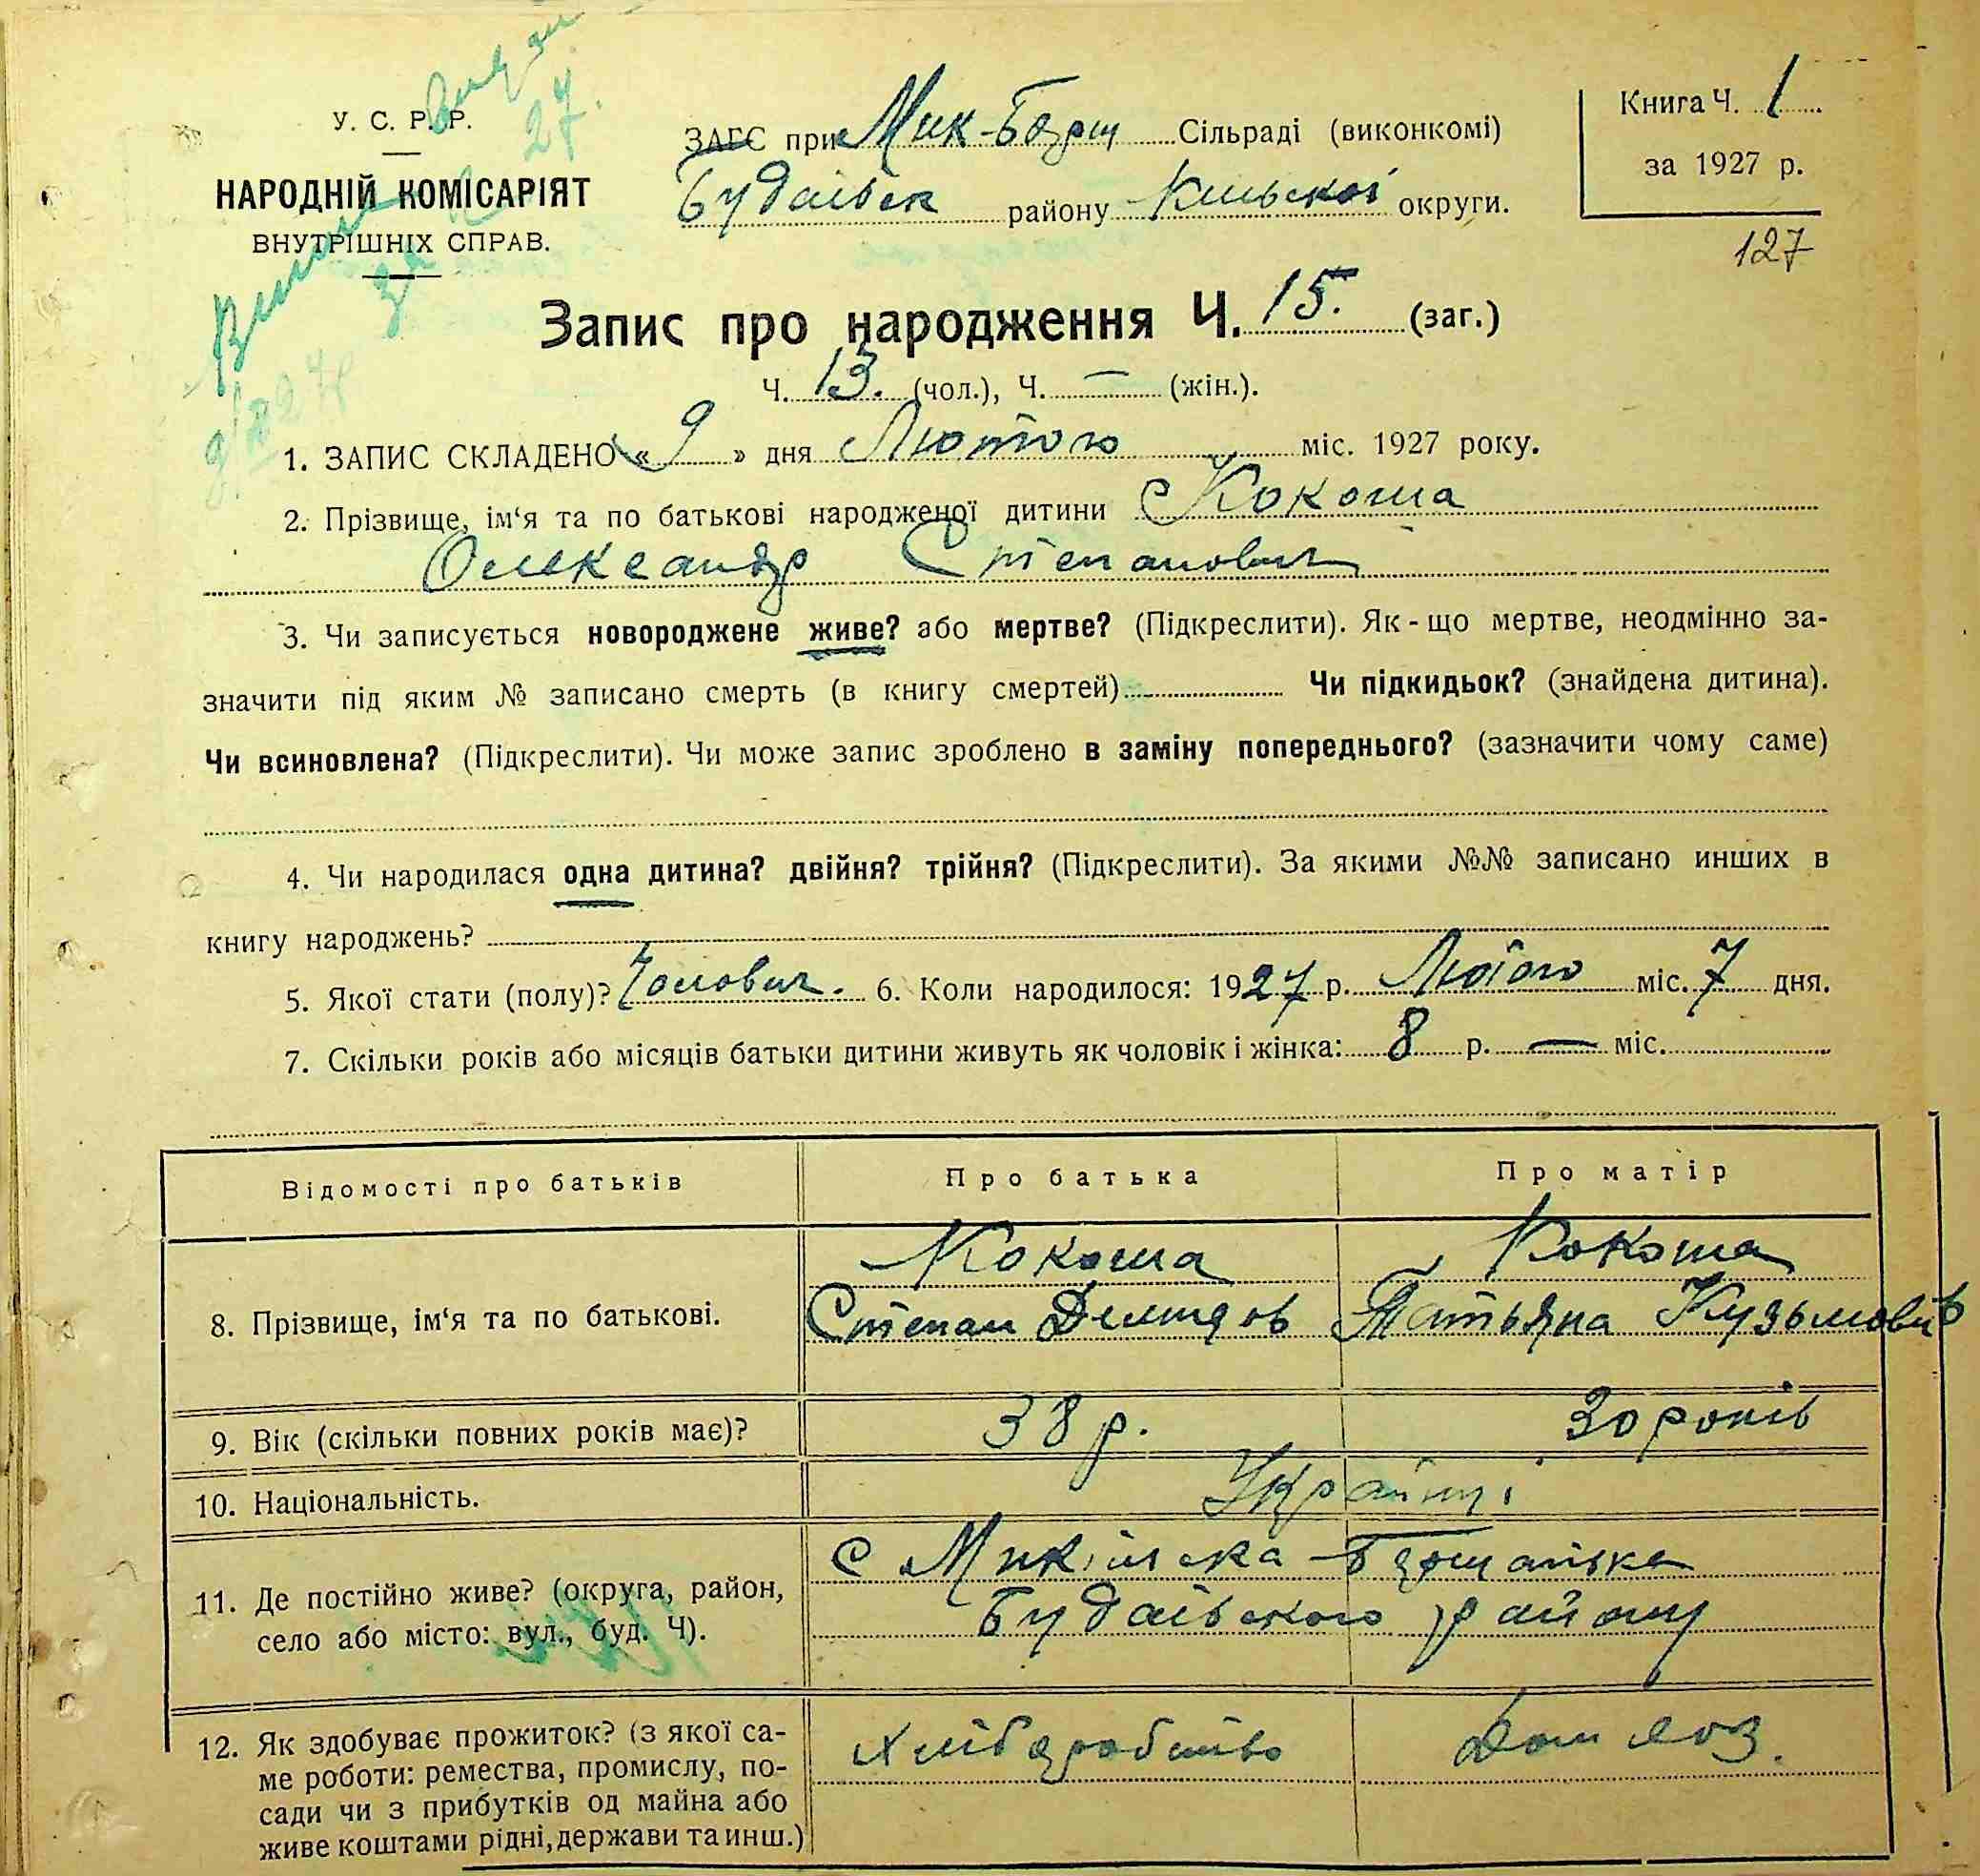 У. С. Р. Р.
НАРОДНІЙ КОМІСАРІЯТ
ВНУТРІШНІХ СПРАВ.
ЗАГС при Мик-Борщ Сільраді (виконкомі)
Будаївськ району Київської округи.
Книга Ч. 1
за 1927 р.
127
Запис про народження Ч. 15. (заг.)
Ч. 13. (чол.), Ч. — (жін.).
1. ЗАПИС СКЛАДЕНО « 9 » дня Лютого міс. 1927 року.
2. Прізвище, ім‘я та по батькові народженої дитини Кокоша
Олександр Степанович
3. Чи записується новороджене живе? або мертве? (Підкреслити). Як-що мертве, неодмінно за-
значити під яким № записано смерть (в книгу смертей) Чи підкидьок? (знайдена дитина).
Чи всиновлена? (Підкреслити). Чи може запис зроблено в заміну попереднього? (зазначити чому саме)
4. Чи народилася одна дитина? двійня? трійня? (Підкреслити). За якими №№ записано инших в
книгу народжень?
5. Якої стати (полу)? Чоловіч. 6. Коли народилося: 1927 р. Лютого міс. 7 дня.
7. Скільки років або місяців батьки дитини живуть як чоловік і жінка: 8 р. — міс.
Відомості про батьків Про батька Про матір
8. Прізвище, ім‘я та по батькові.
Кокоша Кокоша
Степан Демидов Татьяна Кузьмовів
9. Вік (скільки повних років має)? 38 р. 30 років
10. Національність. Українці
11. Де постійно живе? (округа, район,
село або місто: вул., буд. Ч).
с Микільска Борщагівка
Будаівського району
12. Як здобуває прожиток? (з якої са-
ме роботи: ремества, промислу, по-
сади чи з прибутків од майна або
живе коштами рідні, держави та инш.)
хліборобство Дом хоз.